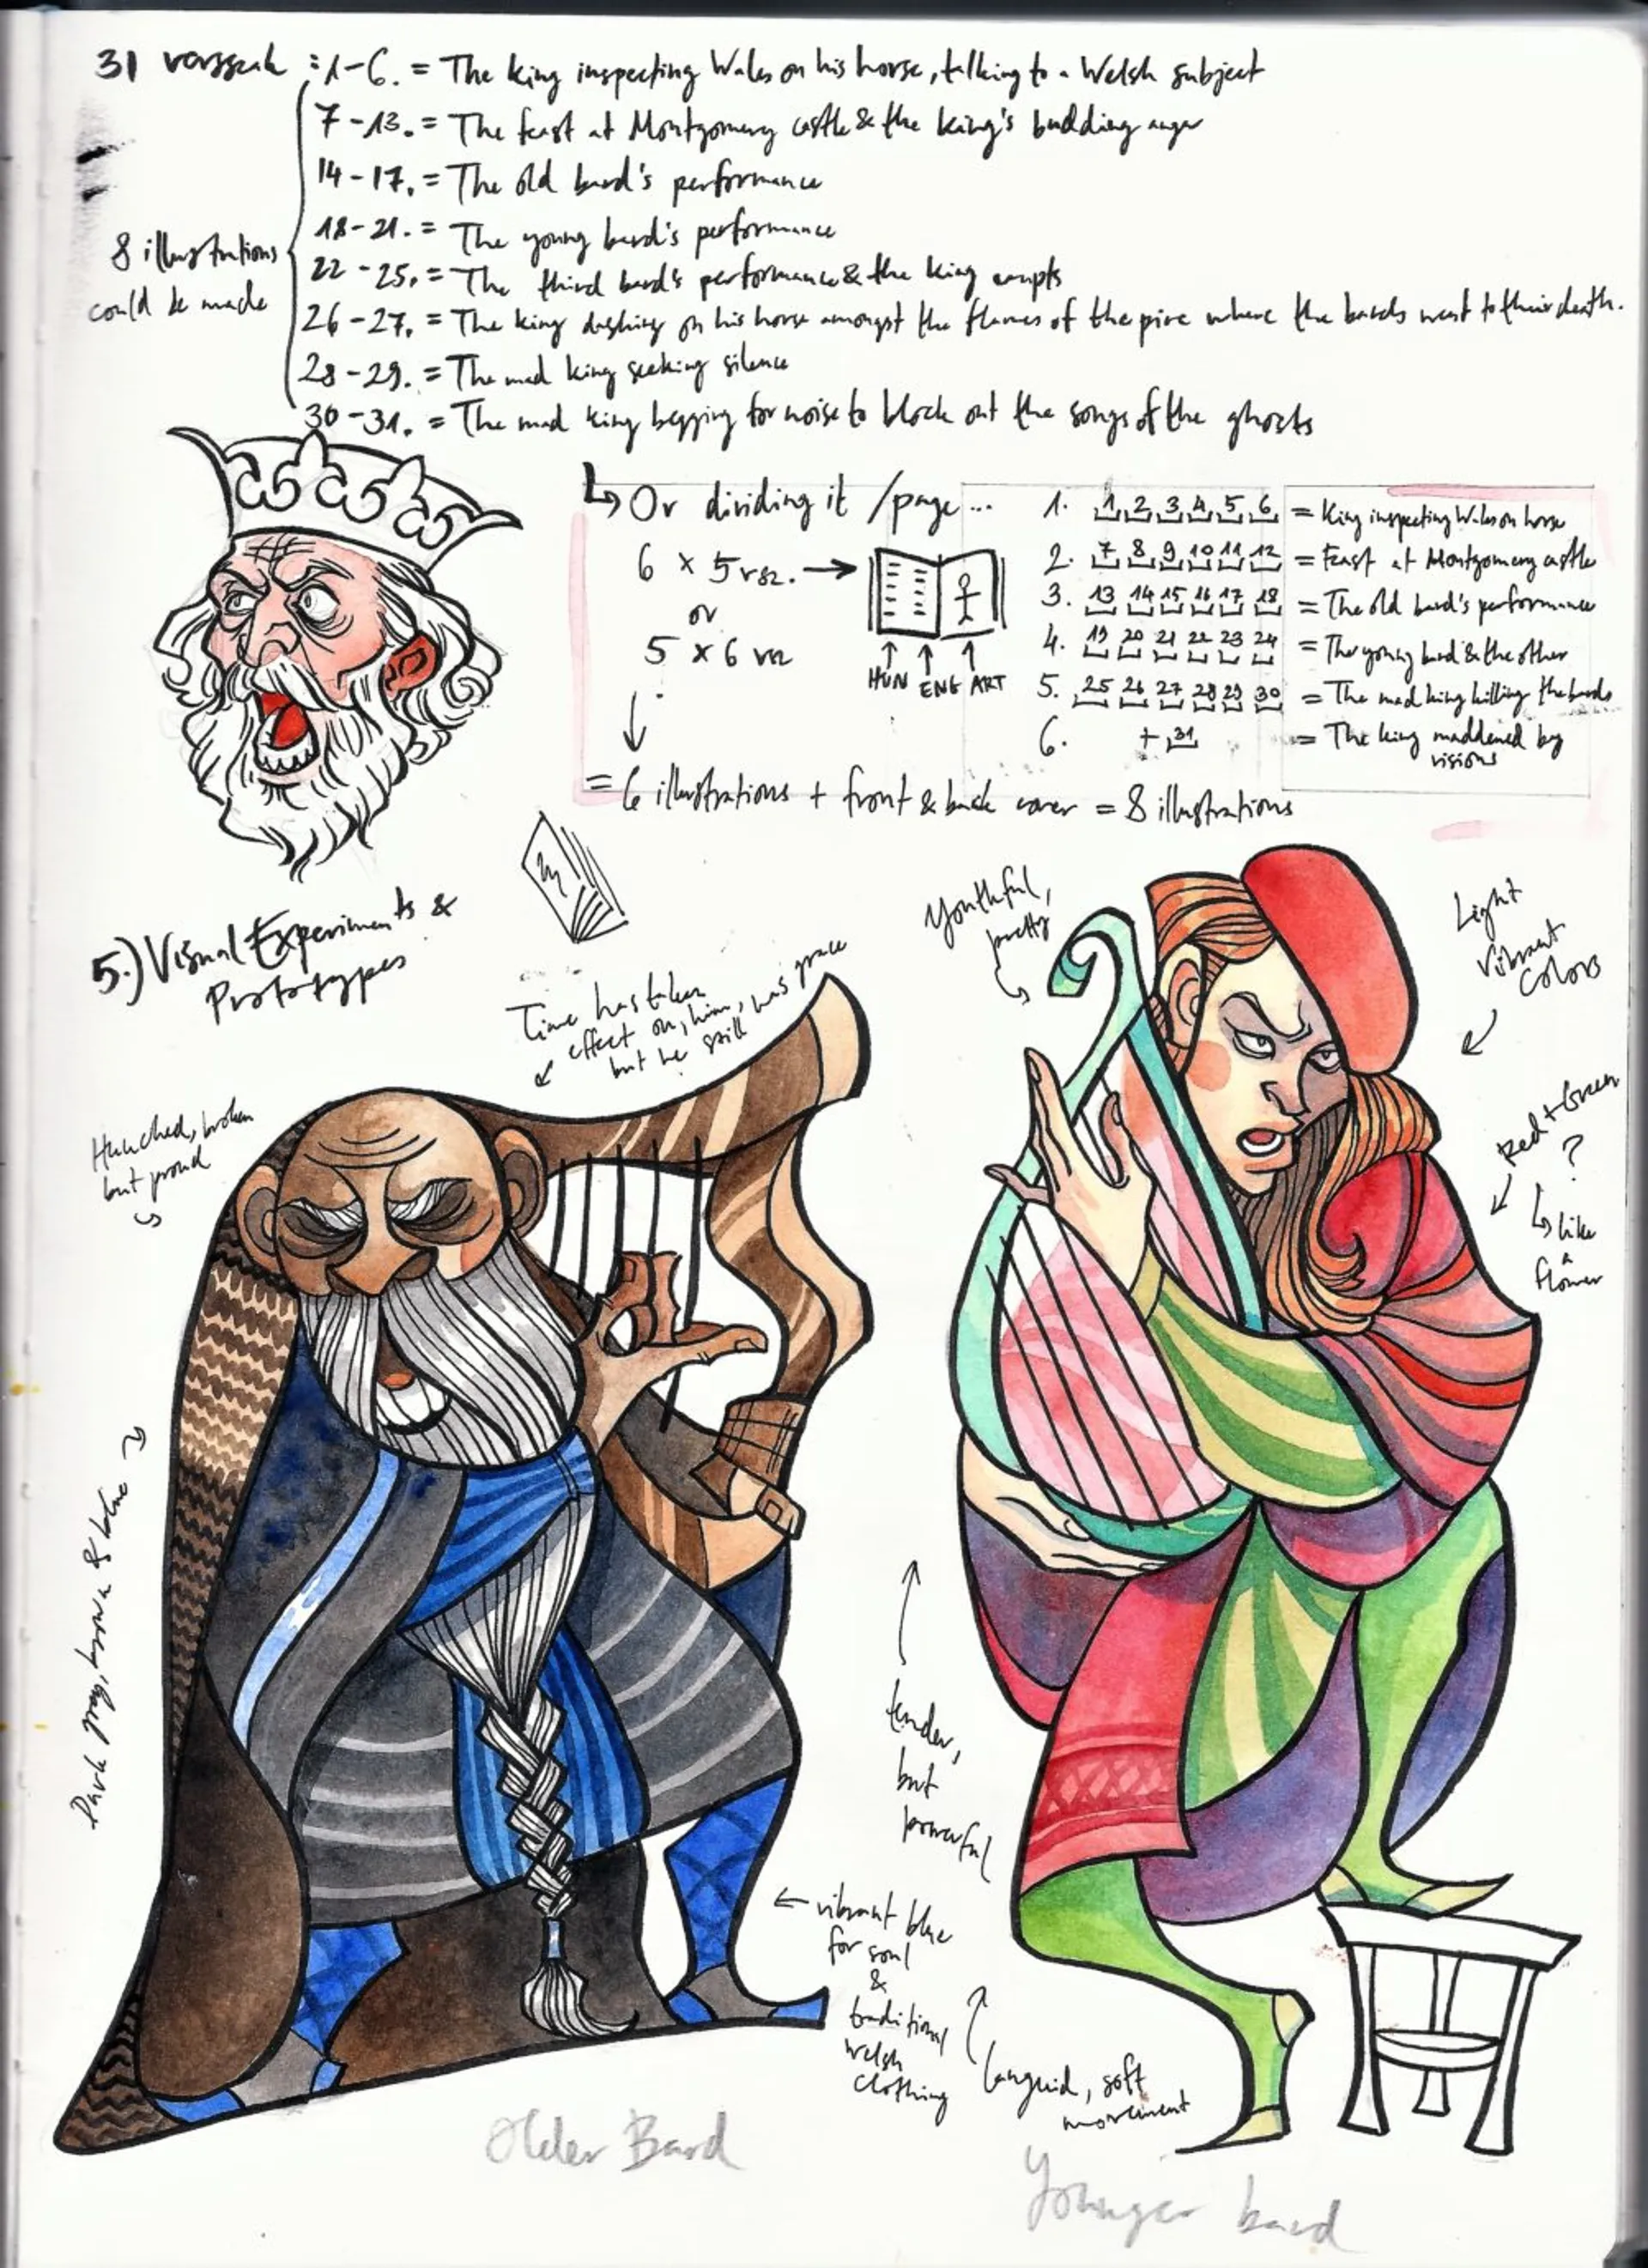 31 versszak : 1-6. = The king inspecting Wales on his horse, talking to a Welsh subject
7-13. = The feast at Montgomery castle & the king's budding anger
14-17. = The old bard's performance
18-21. = The young bard's performance
22-25. = The third bard's performance & the king erupts
26-27. = The king dashing on his horse amongst the flames of the pire where the bards went to their death.
28-29. = The mad king seeking silence
30-31. = The mad king begging for noise to block out the songs of the ghosts
8 illustrations
could be made
↳ Or dividing it /page...
6 × 5 vsz. →
or
5 × 6 vsz
↓
HUN ENG ART
1. 1 2 3 4 5 6 = King inspecting Wales on horse
2. 7 8 9 10 11 12 = Feast at Montgomery castle
3. 13 14 15 16 17 18 = The old bard's performance
4. 19 20 21 22 23 24 = The young bard & the other
5. 25 26 27 28 29 30 = The mad king killing the bards
6. + 31 = The king maddened by
visions
= 6 illustrations + front & back cover = 8 illustrations
5.) Visual Experiments &
Prototypes
Time has taken
effect on him,
but he still has grace
Hunched, broken
but proud
Dark gray, brown & blue
← vibrant blue
for soul
&
traditional
welsh
clothing
Older Bard
Youthful,
pretty
Light
vibrant
colors
Red + Green
?
↳ like
a
flower
tender,
but
powerful
languid, soft
movement
Younger bard